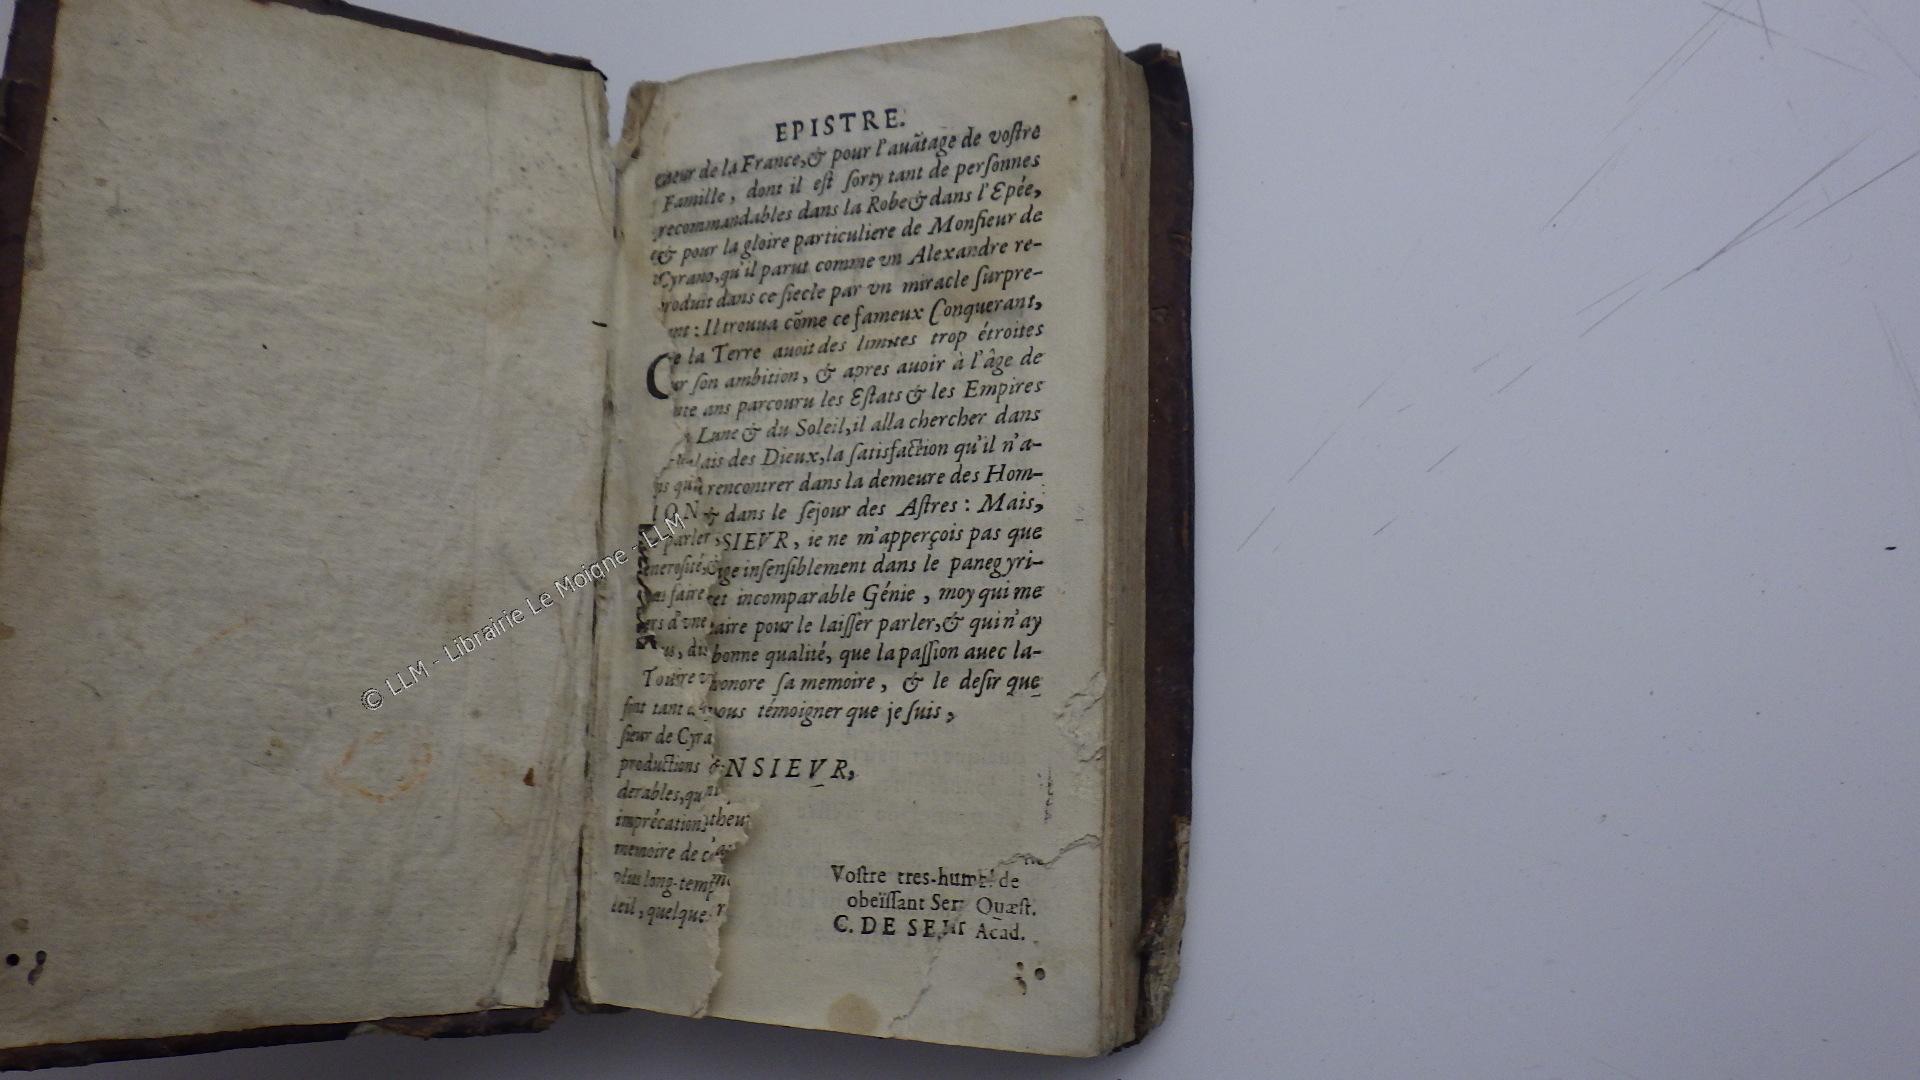 EPISTRE.
de la France,& pour l'auãtage de voſtre
Famille, dont il eſt ſorty tant de perſonnes
recommandables dans la Robe & dans l'Epée,
& pour la gloire particuliere de Monſieur de
Cyrano, qu'il parut comme vn Alexandre re-
produit dans ce ſiecle par vn miracle ſurpre-
: Il trouua cõme ce fameux Conquerant,
la Terre auoit des limites trop étroites
ſon ambition, & apres auoir à l'âge de
ans parcouru les Eſtats & les Empires
Lune & du Soleil, il alla chercher dans
lais des Dieux, la ſatisfaction qu'il n'a-
rencontrer dans la demeure des Hom-
& dans le ſejour des Aſtres : Mais,
SIEVR, ie ne m'apperçois pas que
inſenſiblement dans le panegyri-
incomparable Génie, moy qui me
pour le laiſſer parler, & qui n'ay
bonne qualité, que la paſſion auec la-
onore ſa memoire, & le deſir que
témoigner que je ſuis,
NSIEVR,
ION
parler,
neroſité,
faire
d'vne
ſont tant
ſieur de Cyra
productions &
derables, qu
imprécations
memoire de c
plus long-temp
quelque
Voſtre tres-hum
de
obeïſſant Ser
Quæſt.
C. DE SE
Acad.
© LLM - Librairie Le Moigne - LLM